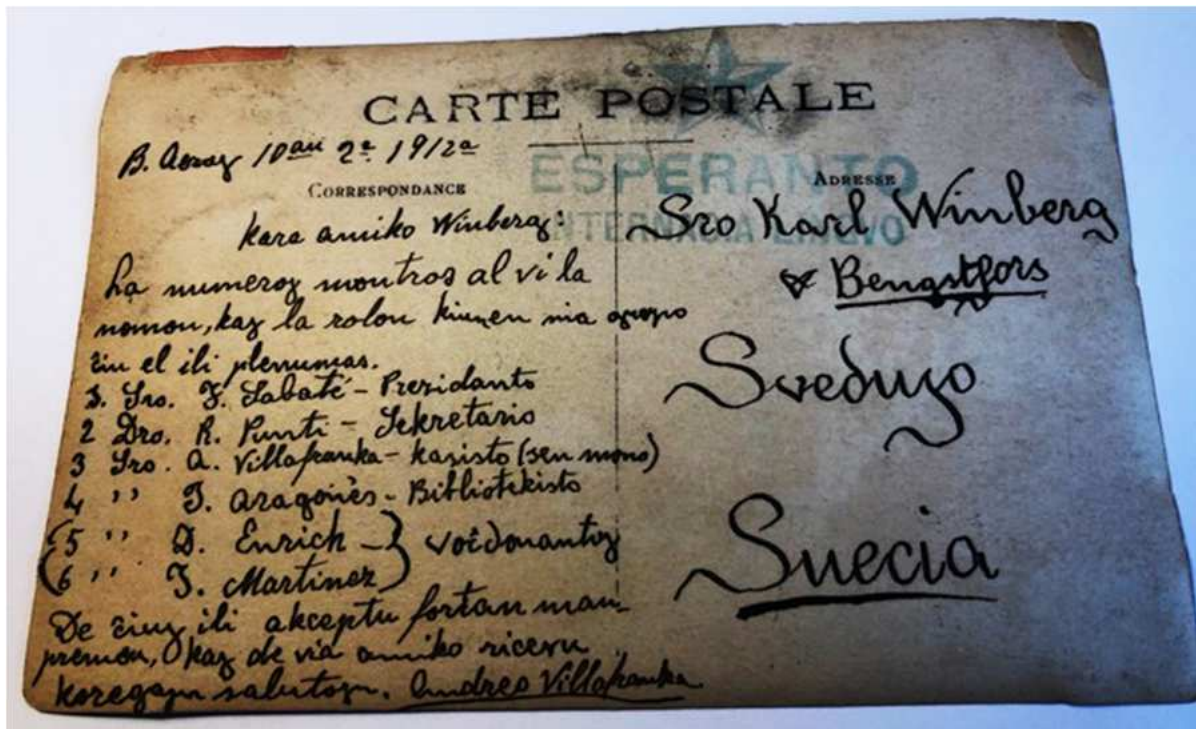 CARTE POSTALE
ESPERANTO
INTERNACIA LINGVO
B. 10an 2a 1912a
CORRESPONDANCE
Kara amiko Winberg:
La numeroj montros al vi la
nomon, kaj la rolon kiun en nia grupo
ĉiu el ili plenumas.
Sro. F. Sabaté - Prezidanto
2 Dro. R. Punti - Sekretario
3 Sro. A. Villafranka - Kasisto (sen mono)
4 " J. Aragonés - Bibliotekisto
(5 " D. Enrich -} voĉdonantoj
(6 " J. Martinez)
De ĉiuj ili akceptu fortan man
premon, kaj de via amiko ricevu
koregajn salutojn. Andreo Villafranka
ADRESSE
Sro Karl Winberg
Bengstfors
Svedujo
Suecia